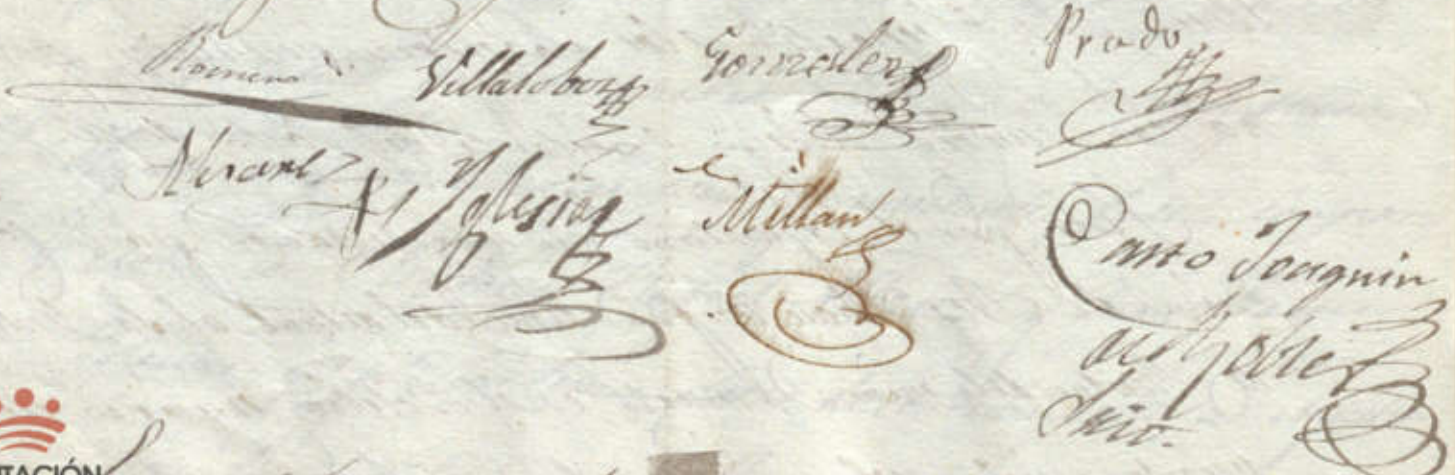 Romero Villalobos Gonzalez Prado
Alvarez Yglesias Millan
Cano Joaquin
Srio.
TACIÓN